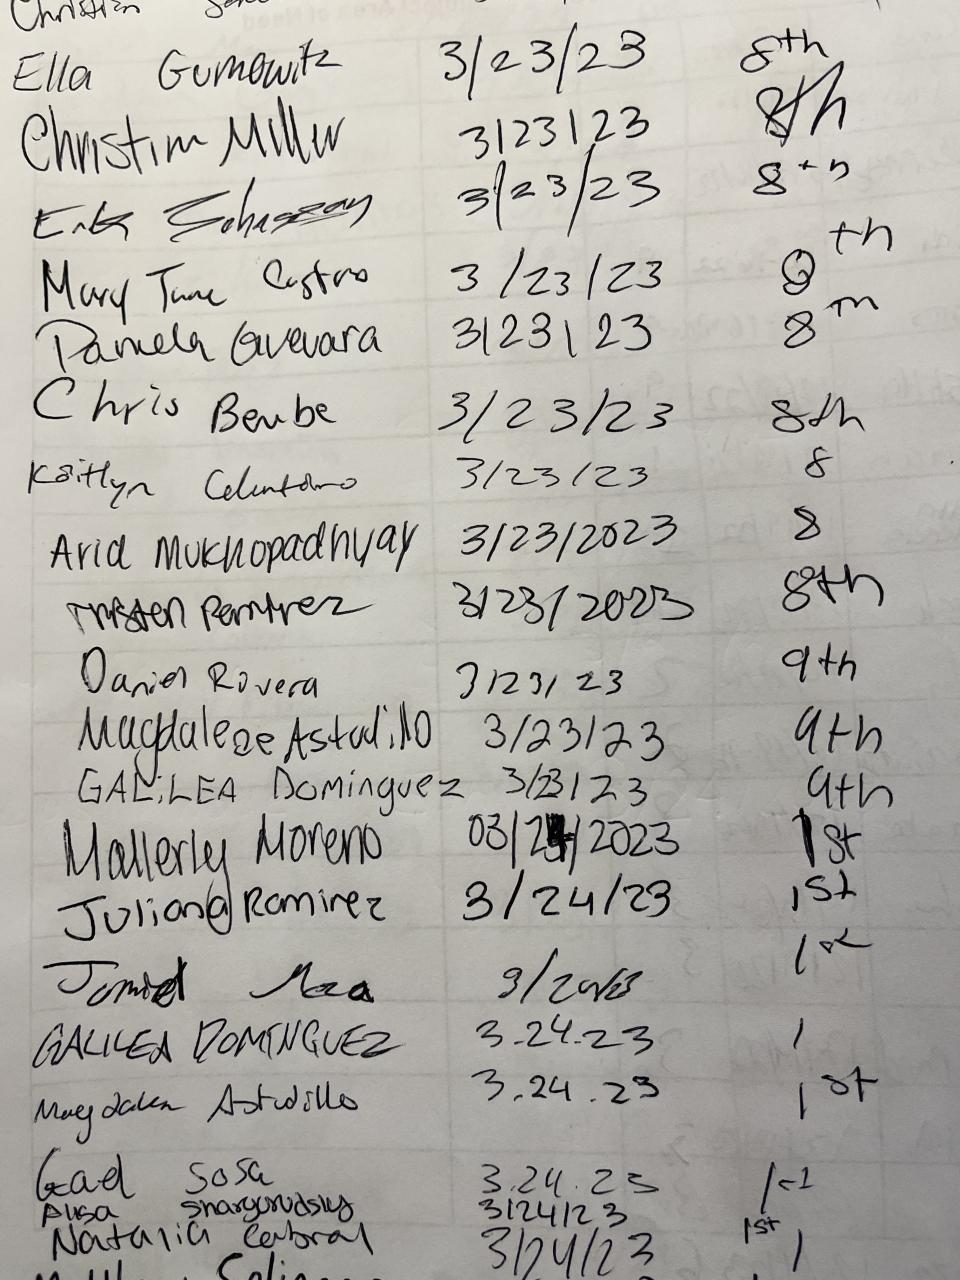 Christian
Ella Gumowitz 3/23/23 8th
Christina Miller 3/23/23 8th
Erik 3/23/23 8th
Mary Jane Castro 3/23/23 8th
Pamela Guevara 3/23/23 8th
Chris Benbe 3/23/23 8th
Kaitlyn Celentano 3/23/23 8
Aria Mukhopadhyay 3/23/2023 8
Tristen Ramirez 3/23/2023 8th
Daniel Rovera 3/23/23 9th
Magdalene Astudillo 3/23/23 9th
GALILEA Dominguez 3/23/23 9th
Mallerly Moreno 03/24/2023 1st
Juliana Ramirez 3/24/23 1st
Jamiel Meza 1st
GALILEA DOMINGUEZ 3.24.23 1
Magdalen Astudillo 3.24.23 1st
Gad Sosa 3.24.23
Alisa Shargorodsky 3/24/23 1st
Natalia Cabral 3/24/23 1